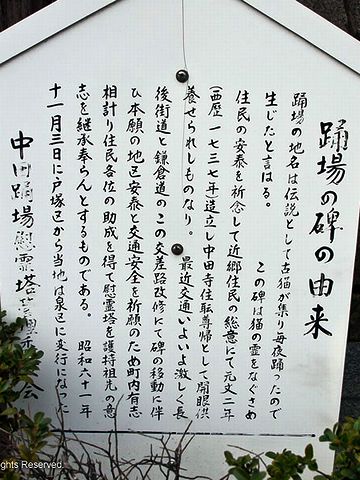 踊場の碑の由来
踊場の地名は伝説として古猫が集り毎夜踊ったので
生じたと言はる。 この碑は猫の霊をなぐさめ
住民の安泰を祈念して近郷住民の総意にて元文二年
(西歴一七三七年造立し中田寺住職尊帰として開眼供
養せられしものなり。 最近交通いよいよ激しく長
後街道と鎌倉道のこの交差路改修にて碑の移動に伴
ひ本願の地区安泰と交通安全を祈願のため町内有志
相計り住民各位の助成を得て慰霊塔を護持祖先の意
志を継承奉らんとするものである。 昭和六十一年
十一月三日に戸塚区から当地は泉区に変行になった
中田踊場慰霊塔 会
ghts Reserved.